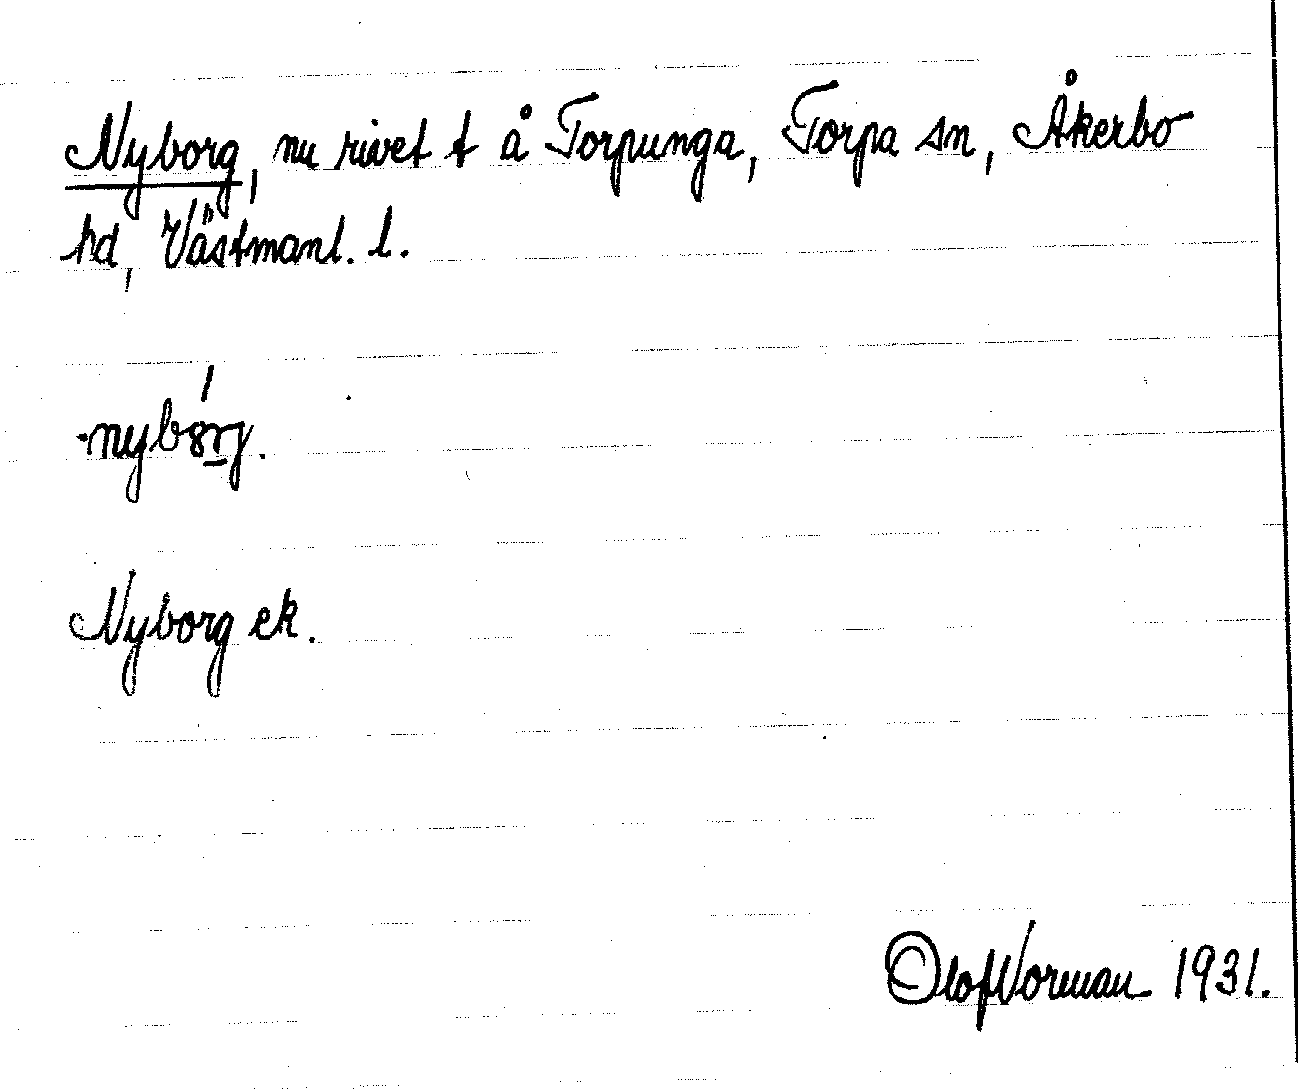 Nyborg, nu rivet t å Torpunga, Torpa sn, Åkerbo
hd, Västmanl. l.
Nyborg ek.
Olof Norman 1931.